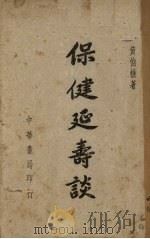 黄伯樵著
保健延壽談
中華書局印行